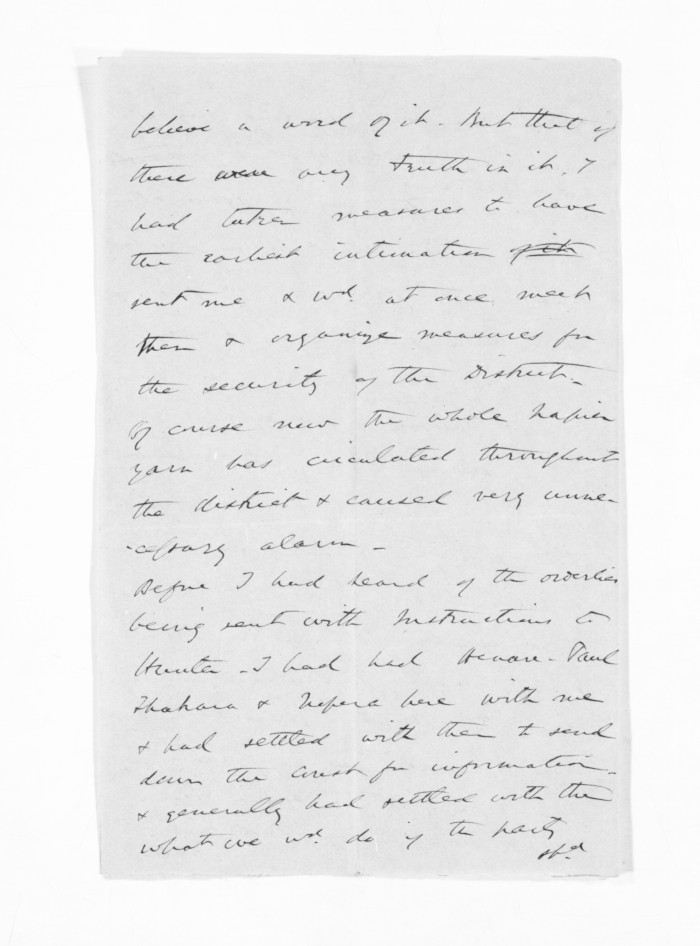 believe a word of it - But that if
there were any truth in it, I
had taken measures to have
the earliest intimation of it
sent me & wd. at once meet
them & organize measures for
the security of the District -
Of course now the whole Napier
yarn has circulated throughout
the district & caused very unne-
-cessary alarm -
Before I had heard of the orderlies
being sent with Instructions to
Hunter - I had had Henare - Paul
& here with me
& had settled with them to send
down the Coast for information -
& generally had settled with them
what we wd. do if the party
shd